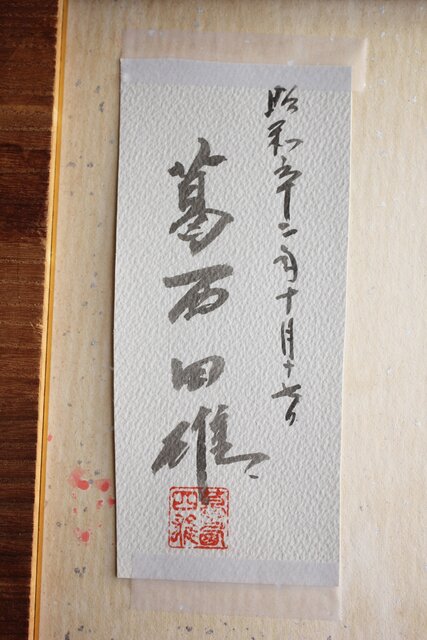 昭和五十二年十月十七日
葛西四雄